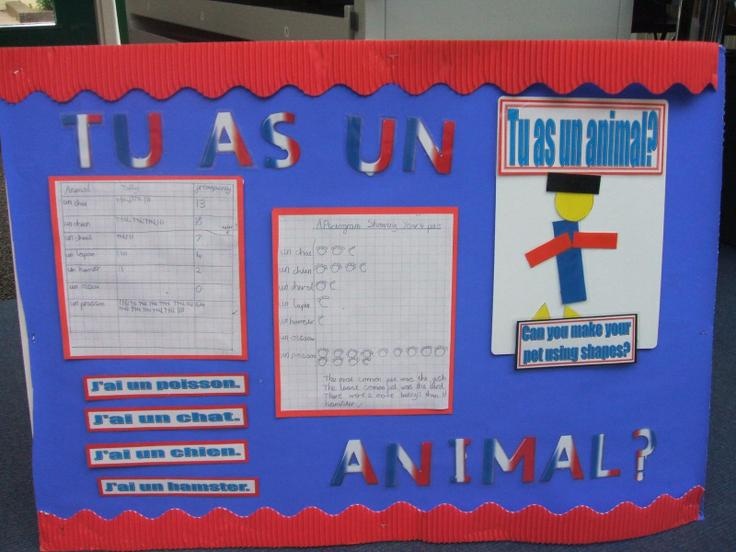 TU AS UN
ANIMAL?
Tu as un animal?
Can you make your
pet using shapes?
Animal Tally frequency
un chat 13
un chien
un cheval 7
un lapin 4
un hamster 2
un oiseau 0
un poisson
A Pictogram Showing Year 4 pets
un chat
un chien
un cheval
un lapin
un hamster
un oiseau
un poisson
The most common pet were the fish
The least common pet was the bird
There were 2 more than
hamster
J'ai un poisson.
J'ai un chat.
J'ai un chien.
J'ai un hamster.